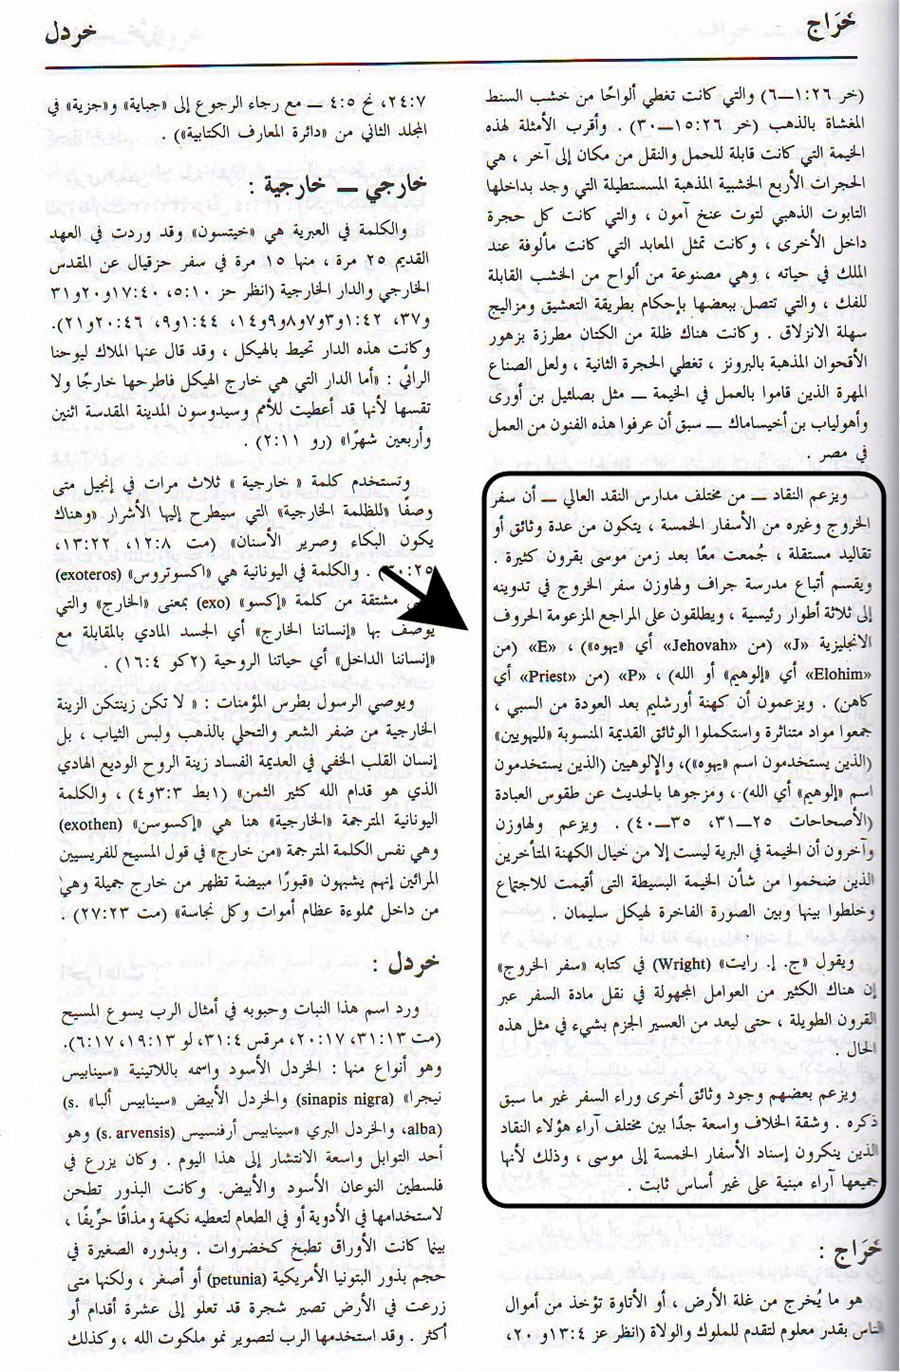 خَرَاج
خردل
(خر ٢٦:١ــ٦) والتي كانت تغطي ألواحًا من خشب السنط
المغشاة بالذهب (خر ٢٦:١٥ــ٣٠) . وأقرب الأمثلة لهذه
الخيمة التي كانت قابلة للحمل والنقل من مكان إلى آخر ، هي
الحجرات الأربع الخشبية المذهبة المسستطيلة التي وجد بداخلها
التابوت الذهبي لتوت عنخ آمون ، والتي كانت كل حجرة
داخل الأخرى ، وكانت تمثل المعابد التي كانت مألوفة عند
الملك في حياته ، وهي مصنوعة من ألواح من الخشب القابلة
للفك ، والتي تتصل ببعضها بإحكام بطريقة التعشيق ومزاليج
سهلة الانزلاق . وكانت هناك ظلة من الكتان مطرزة بزهور
الأقحوان المذهبة بالبرونز ، تغطي الحجرة الثانية ، ولعل الصناع
المهرة الذين قاموا بالعمل في الخيمة ــ مثل بصلئيل بن أورى
وأهولياب بن أخيساماك ــ سبق أن عرفوا هذه الفنون من العمل
في مصر .
ويزعم النقاد ــ من مختلف مدارس النقد العالي ــ أن سفر
الخروج وغيره من الأسفار الخمسة ، يتكون من عدة وثائق أو
تقاليد مستقلة ، جُمعت معًا بعد زمن موسى بقرون كثيرة .
ويقسم أتباع مدرسة جراف ولهاوزن سفر الخروج في تدوينه
إلى ثلاثة أطوار رئيسية ، ويطلقون على المراجع المزعومة الحروف
الانجليزية «J» (من «Jehovah» أي «يهوه») ، «E» (من
«Elohim» أي «إلوهيم» أو الله) ، «P» (من «Priest» أي
كاهن) . ويزعمون أن كهنة أورشليم بعد العودة من السبي ،
جمعوا مواد متناثرة واستكملوا الوثائق القديمة المنسوبة «لليهويين»
(الذين يستخدمون اسم «يهوه»)، والإلوهيين (الذين يستخدمون
اسم «إلوهيم» أي الله) ، ومزجوها بالحديث عن طقوس العبادة
(الأصحاحات ٢٥ــ٣١، ٣٥ــ٤٠) . ويزعم ولهاوزن
وآخرون أن الخيمة في البرية ليست إلا من خيال الكهنة المتأخرين
الذين ضخموا من شأن الخيمة البسيطة التى أقيمت للاجتماع
وخلطوا بينها وبين الصورة الفاخرة لهيكل سليمان .
ويقول «ج. إ. رايت» (Wright) في كتابه «سفر الخروج»
إن هناك الكثير من العوامل المجهولة في نقل مادة السفر عبر
القرون الطويلة ، حتى ليعد من العسير الجزم بشيء في مثل هذه
الحال .
ويزعم بعضهم وجود وثائق أخرى وراء السفر غير ما سبق
ذكره . وشقة الخلاف واسعة جدًا بين مختلف آراء هؤلاء النقاد
الذين ينكرون إسناد الأسفار الخمسة إلى موسى ، وذلك لأنها
جميعها آراء مبنية على غير أساس ثابت .
خَرَاج :
هو ما يُخرج من غلة الأرض ، أو الأتاوة تؤخذ من أموال
الناس بقدر معلوم لتقدم للملوك والولاة (انظر عز ٤:١٣و ٢٠،
٢٤:٧، نح ٥:٤ ــ مع رجاء الرجوع إلى «جباية» و«جزية» في
المجلد الثاني من «دائرة المعارف الكتابية») .
خارجي ــ خارجية :
والكلمة في العبرية هي «خيتسون» وقد وردت في العهد
القديم ٢٥ مرة ، منها ١٥ مرة في سفر حزقيال عن المقدس
الخارجي والدار الخارجية (انظر حز ١٠:٥، ٤٠:١٧و٢٠و٣١
و٣٧، ٤٢:١و٣و٧و٨و٩و١٤، ٤٤:١و٩، ٤٦:٢٠و٢١).
وكانت هذه الدار تحيط بالهيكل ، وقد قال عنها الملاك ليوحنا
الرائي : «أما الدار التي هي خارج الهيكل فاطرحها خارجًا ولا
تقسها لأنها قد أعطيت للأمم وسيدوسون المدينة المقدسة اثنين
وأربعين شهرًا» (رو ١١:٢) .
وتستخدم كلمة « خارجية » ثلاث مرات في إنجيل متى
وصفًا «للظلمة الخارجية» التي سيطرح إليها الأشرار «وهناك
يكون البكاء وصرير الأسنان» (مت ٨:١٢، ٢٢:١٣،
٢٥:٣٠) . والكلمة في اليونانية هي «اكسوتروس» (exoteros)
مشتقة من كلمة «إكسو» (exo) بمعنى «الخارج» والتي
يوصف بها «إنساننا الخارج» أي الجسد المادي بالمقابلة مع
«إنساننا الداخل» أي حياتنا الروحية (٢كو ٤:١٦) .
ويوصي الرسول بطرس المؤمنات : « لا تكن زينتكن الزينة
الخارجية من ضفر الشعر والتحلي بالذهب ولبس الثياب ، بل
إنسان القلب الخفي في العديمة الفساد زينة الروح الوديع الهادي
الذي هو قدام الله كثير الثمن» (١بط ٣:٣و٤) ، والكلمة
اليونانية المترجمة «الخارجية» هنا هي «إكسوسن» (exothen)
وهي نفس الكلمة المترجمة «من خارج» في قول المسيح للفريسيين
المرائين إنهم يشبهون «قبورًا مبيضة تظهر من خارج جميلة وهي
من داخل مملوءة عظام أموات وكل نجاسة» (مت ٢٣:٢٧) .
خردل :
ورد اسم هذا النبات وحبوبه في أمثال الرب يسوع المسيح
(مت ١٣:٣١، ١٧:٢٠، مرقس ٤:٣١، لو ١٣:١٩، ١٧:٦).
وهو أنواع منها : الخردل الأسود واسمه باللاتينية «سينابيس
نيجرا» (sinapis nigra) والخردل الأبيض «سينابيس ألبا» (s.
alba)، والخردل البري «سينابيس أرفنسيس (s. arvensis) وهو
أحد التوابل واسعة الانتشار إلى هذا اليوم . وكان يزرع في
فلسطين النوعان الأسود والأبيض. وكانت البذور تطحن
لاستخدامها في الأدوية أو في الطعام لتعطيه نكهة ومذاقًا حرِّيفًا ،
بينما كانت الأوراق تطبخ كخضروات . وبذوره الصغيرة في
حجم بذور البتونيا الأمريكية (petunia) أو أصغر ، ولكنها متى
زرعت في الأرض تصير شجرة قد تعلو إلى عشرة أقدام أو
أكثر . وقد استخدمها الرب لتصوير نمو ملكوت الله ، وكذلك